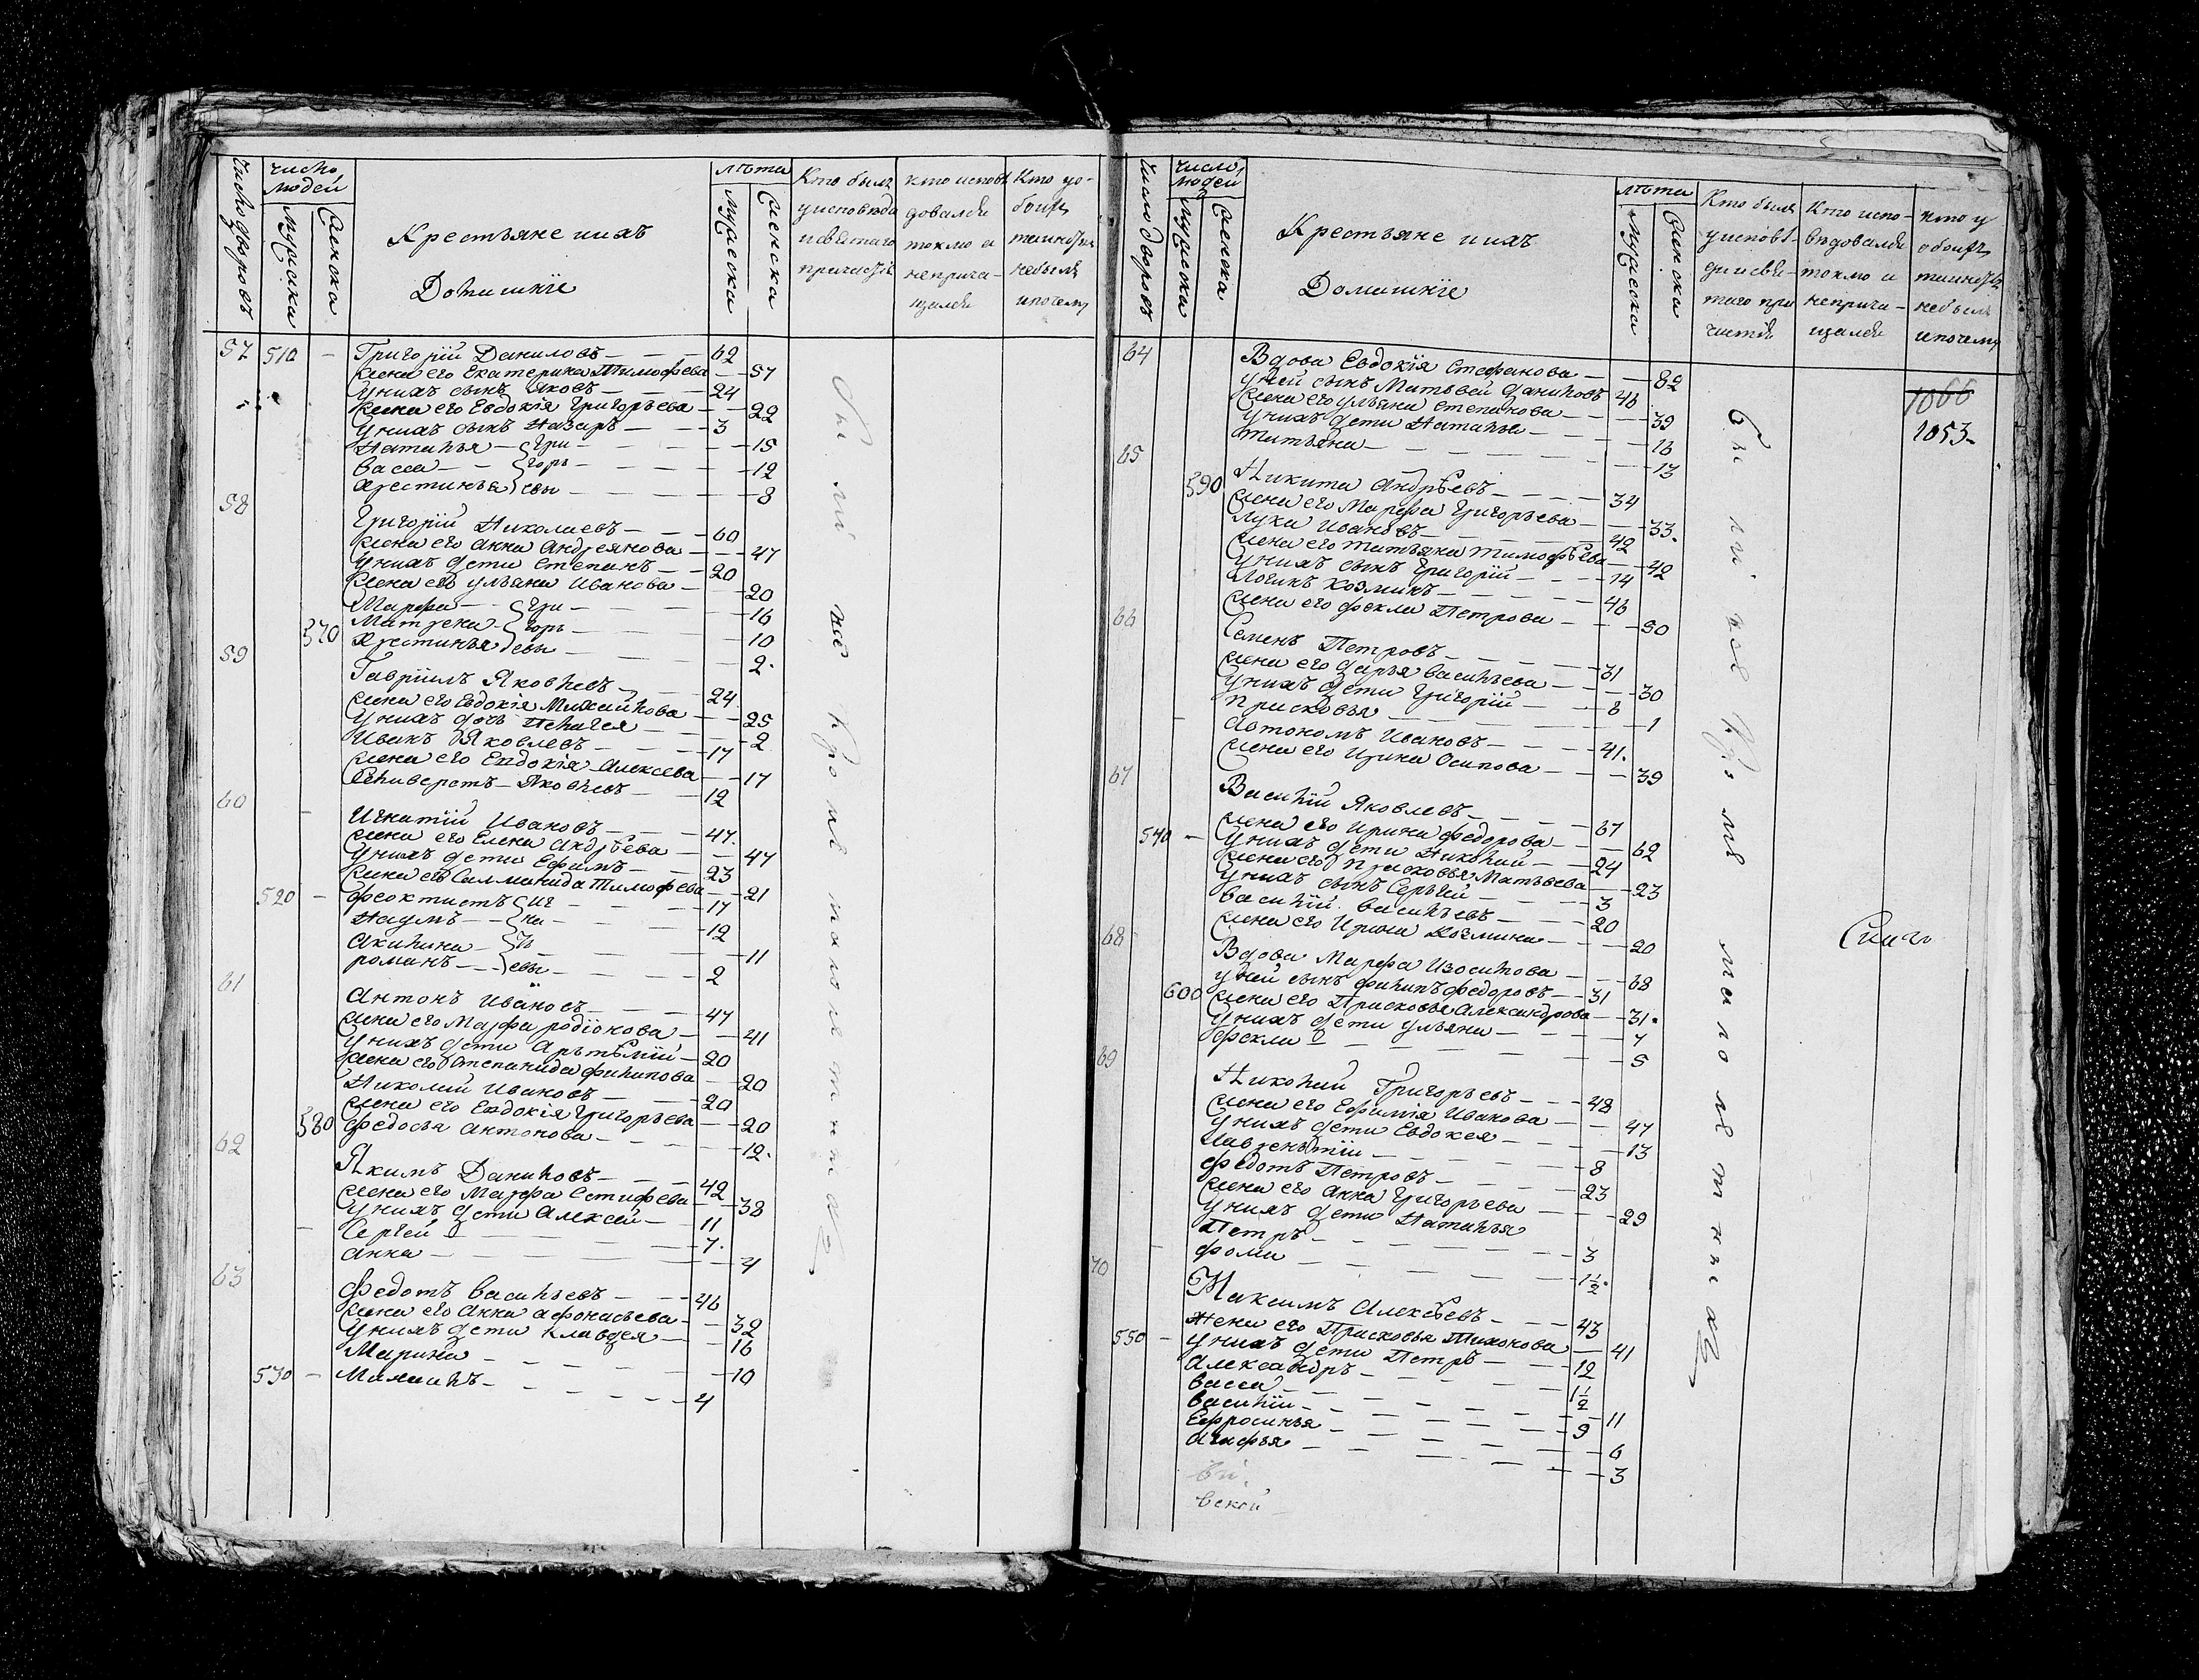 число дворовъ
число людей
мужеска
женска
Крестьяне и ихъ
Домашніе
лѣта
мужеска
женска
Кто былъ у исповеди и святаго причастія
кто исповѣдовался токмо а не причащался
Кто у обоихъ таинствъ не былъ и почему
57 510 – Григорій Даниловъ – 62
жена его Екатерина Тимофѣева – 57
у нихъ сынъ Яковъ – 24
жена его Евдокія Григорьева – 22
у нихъ сынъ Назаръ – 3
Наталья – Гри – 15
Васса – горь – 12
Христинья евы – 8
58
Григорій Николаевъ – 60
жена его Анна Андреянова – 47
у нихъ дети Степанъ – 20
жена его ульяна Иванова – 20
Марфа – Гри – 16
Матрена – горь – 10
570 Христинья евы – 2
59
Гавріилъ Яковлевъ – 24
жена его Евдокія Михайлова – 25
у нихъ дочь Пелагея – 2
Иванъ Яковлевъ – 17
жена его Евдокія Алексеева – 17
Селиверстъ Яковлевъ – 12
60
Игнатій Ивановъ – 47
жена его Елена Андрѣева – 47
у нихъ дети Ефимъ – 23
жена его Саламанида Тимофева – 21
520 – Феоктистъ Иг – 17
Наумъ – на – 12
Акилина – ть – 11
романъ – евы – 2
61
Антонъ Ивановъ – 47
жена его Марфа родіонова – 41
у нихъ дети Артѣмій – 20
жена его Степанида Филипова – 20
Николай Ивановъ – 20
жена его Евдокія Григорьева – 20
580 Федосья Антонова – 12
62
Якимъ Даниловъ – 42
жена его Марфа Естифева – 38
у нихъ дети Алексей – 11
Сергей – 7
Анна – 4
63
Федотъ Васильевъ – 46
жена его Анна Афонасьева – 32
у нихъ дети Клавдея – 16
Марина – 10
530 – Михаилъ – 4
Были же кроме малолетныхъ
число дворовъ
число людей
мужеска
женска
Крестьяне и ихъ
Домашніе
лѣта
мужеска
женска
Кто былъ у исповѣди и святаго причастія
Кто исповѣдовался токмо а не причащался
кто у обоихъ таинствъ не былъ и почему
64
Вдова Евдокія Стефанова – 82
у ней сынъ Матьвей Даниловъ 46
жена его ульяна степанова – 39
у нихъ дети Наталья – 16
Татьяна – 13
65
590 Никита Андрѣевъ – 34
жена его Марфа Григорьева – 33
Лука Ивановъ – 42
жена его татьяна тимофѣева – 42
у нихъ сынъ Григорій – 14
Логинъ Козминъ – 46
жена его Фекла Петрова – 50
66
Семенъ Петровъ – 31
жена его Дарья Васильева – 30
у нихъ дети Григорій – 6
Прасковья – 1
– Автономъ Ивановъ – 41
жена его Ирина Осипова – 39
67
Василій Яковлевъ – 67
жена его Ирина Федорова – 62
540 – у нихъ дети Николай – 24
жена его Прасковья Матьвева – 23
у нихъ сынъ Сергей – 3
Василій Васильевъ – 20
жена его Ирина Козмина – 20
68
Вдова Марфа Изосимова – 68
у ней сынъ Филипъ Федоровъ – 31
600 жена его Прасковья Александрова – 31
у нихъ дети ульяна – 7
Фекла – 5
69
Николай Григорьевъ – 48
жена его Ефимія Иванова – 47
у нихъ дети Евдокея – 13
Лаврентій – 8
Федотъ Петровъ – 23
жена его Анна Григорьева – 29
у нихъ дети Наталья
Петръ – 3
– Фома – 1 1/2
70
Максимъ Алексѣевъ – 43
жена его Прасковья Тихонова – 41
550 – у нихъ дети Петръ – 12
Александръ – 1 1/2
Васса – 11
Василій – 9
Ефросинья – 6
Агафья – 3
Были все кроме малолетныхъ
1066
1053